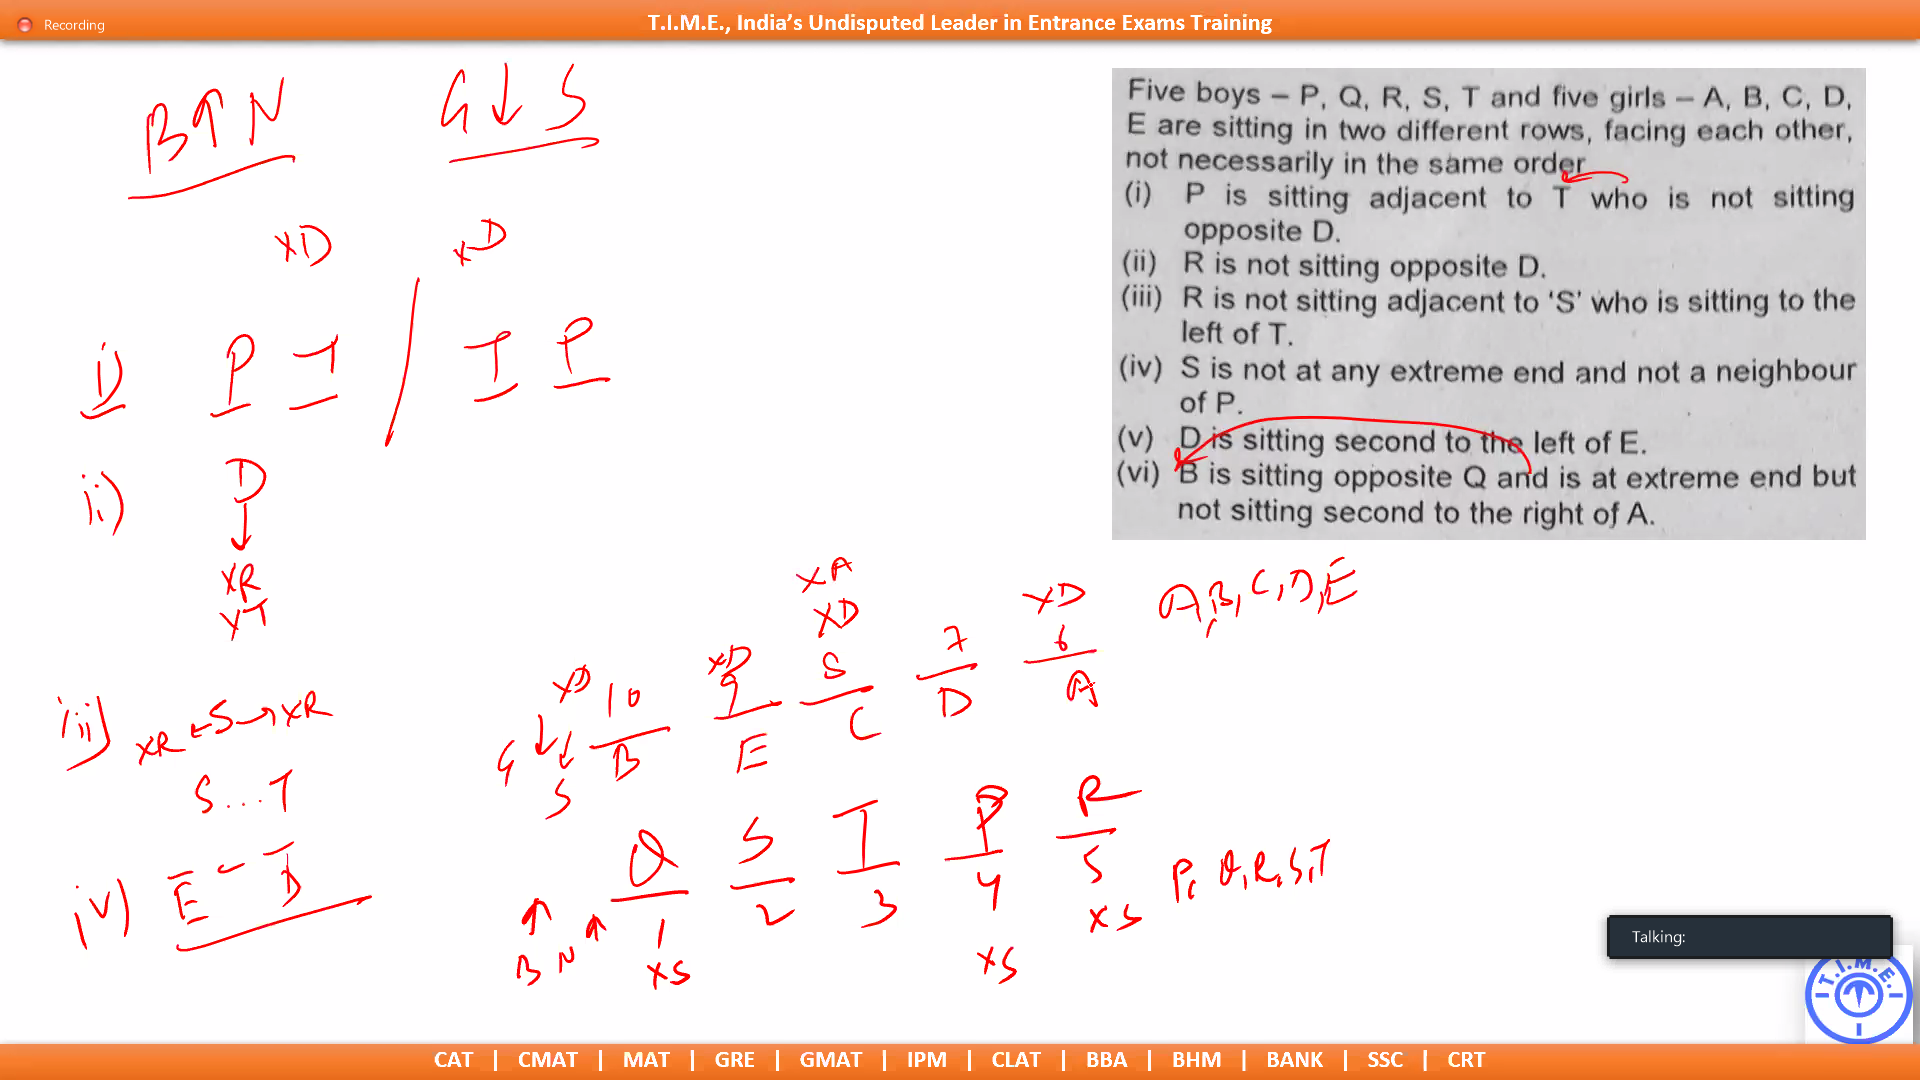 Recording
T.I.M.E., India's Undisputed Leader in Entrance Exams Training
B↑N
G↓S
Five boys – P, Q, R, S, T and five girls – A, B, C, D,
E are sitting in two different rows, facing each other,
not necessarily in the same order
(i) P is sitting adjacent to T who is not sitting
opposite D.
(ii) R is not sitting opposite D.
(iii) R is not sitting adjacent to 'S' who is sitting to the
left of T.
(iv) S is not at any extreme end and not a neighbour
of P.
(v) D is sitting second to the left of E.
(vi) B is sitting opposite Q and is at extreme end but
not sitting second to the right of A.
XD XD
i) P T / T P
ii) D
↓
XR
XT
iii) XR ← S → XR
S...T
iv) E – D
XA
XD XD
XD 10 XD 9 8 7 6
A, B, C, D, E
G ↓ ↓ S B E C D A
Q S T P R
P, Q, R, S, T
↑ B N ↑ 1 2 3 4 5
XS XS XS
Talking:
T.I.M.E.
CAT | CMAT | MAT | GRE | GMAT | IPM | CLAT | BBA | BHM | BANK | SSC | CRT